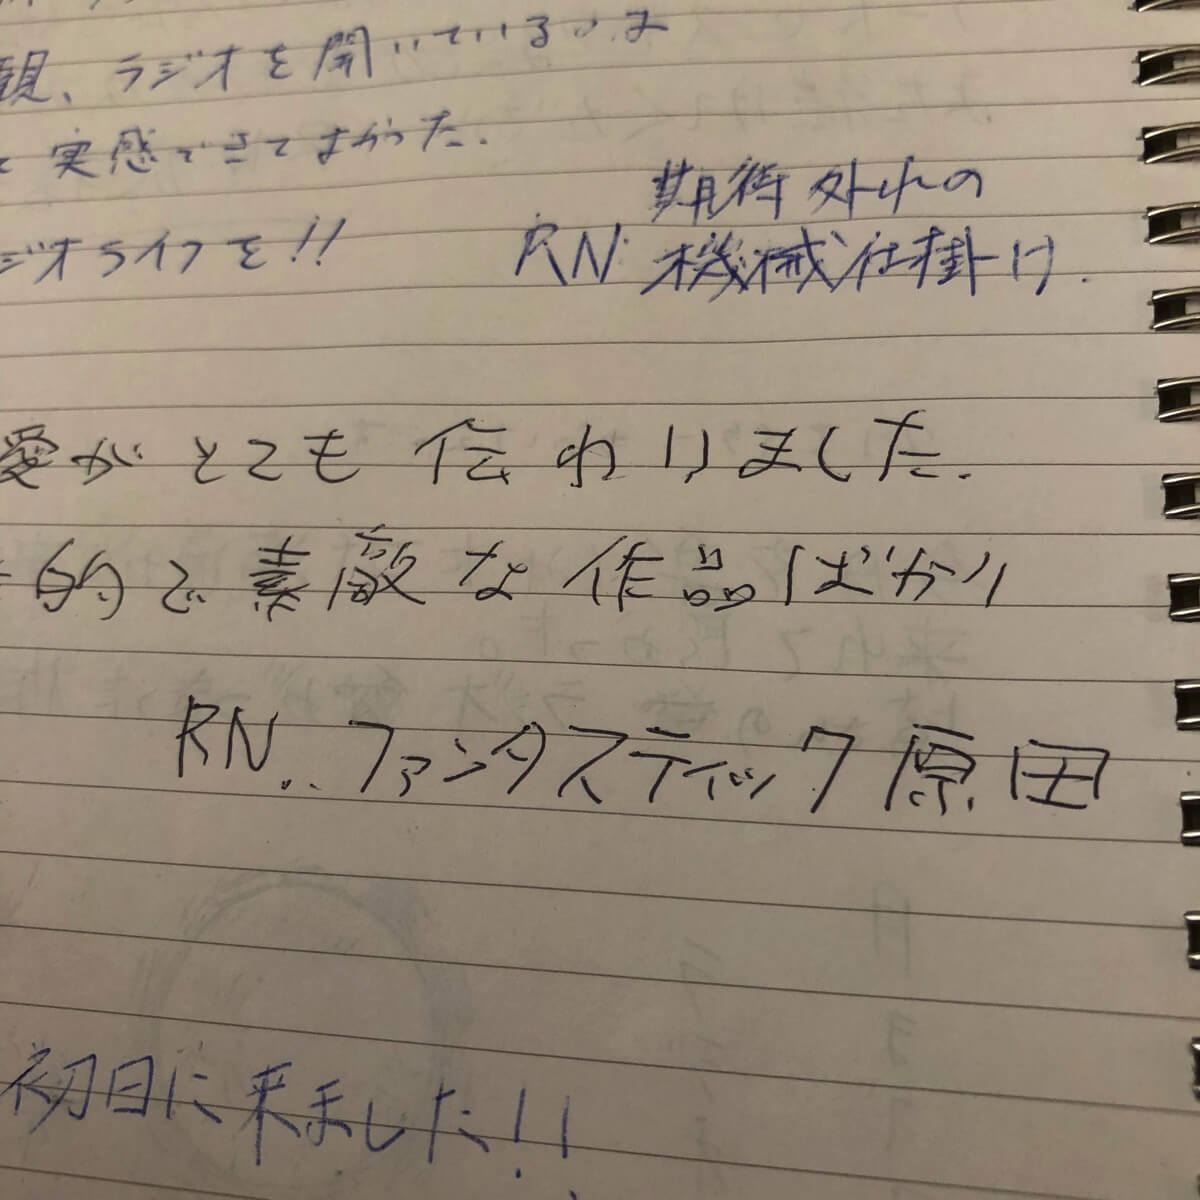 観、ラジオを聞いているのは
実感できてよかった.
ジオライフを!!
期待外れの
RN 機械仕掛け.
愛がとても伝わりました.
的で素敵な作品ばかり
RN.. ファンタスティック原田
初日に来ました!!